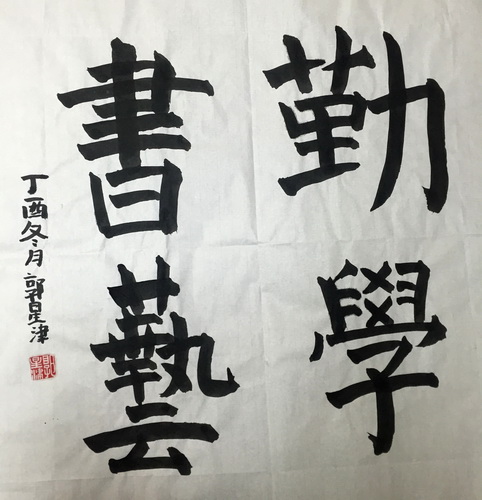 勤學
書藝
丁酉冬月郭星津